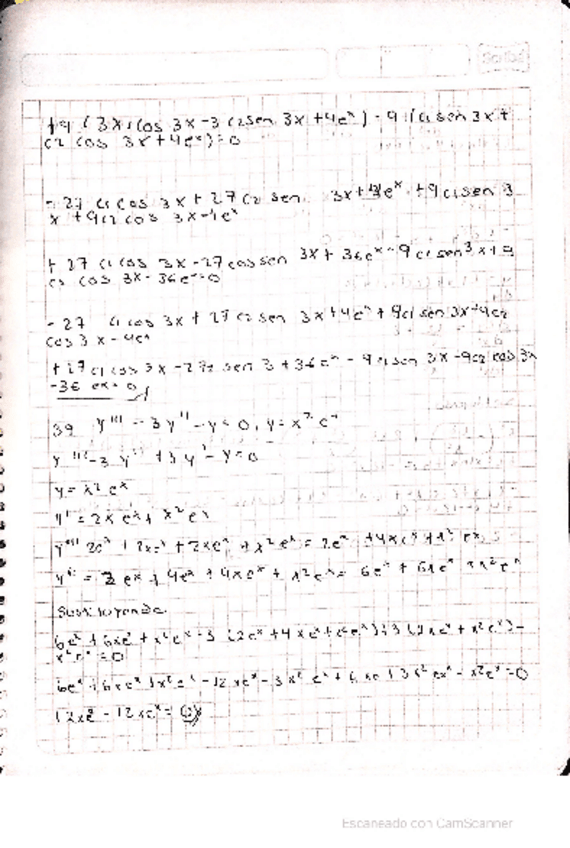 Scribe
+9 (3x1cos 3x-3 c2sen 3x+4eˣ) - 9 (c1sen 3x+
c2 cos 3x+4eˣ)=0
-27 c1cos 3x+27c2 sen 3x+4eˣ +9c1sen 3
x +9c2cos 3x-4eˣ
+27 c1cos 3x-27cos sen 3x+36eˣ-9c1sen3x+9
c2 cos 3x-36eˣ=0
-27 c1cos 3x+27c2sen 3x+4eˣ+9c1sen 3x+9c2
cos3x-4eˣ
+27c1cos3x-27c2sen3+36eˣ-9c1sen 3x-9c2 cos3x
-36 ex=0
39 y'''-3y''-y=0, y=x²eˣ
y'''-3y''+3y'-y=0
y=x²eˣ
y'=2xeˣ+x²eˣ
y''' 2eˣ+2xeˣ+2xeˣ+x²eˣ=2eˣ+4xeˣ+x²eˣ
y'''=2eˣ+4eˣ+4xeˣ+x²eˣ=6eˣ+6xeˣ+x²eˣ
Sustituyendo
6eˣ+6xeˣ+x²eˣ-3(2eˣ+4xeˣ+x²eˣ)+3(2xeˣ+x²eˣ)-
x²eˣ=0
6eˣ+6xeˣ+x²eˣ-12xeˣ-3x²eˣ+6xe+3x²ex-x²eˣ=0
12xeˣ-12xeˣ=0
Escaneado con CamScanner